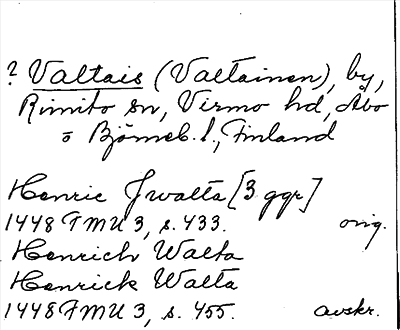 ? Valtais (Valtainen), by,
Rimito sn, Virmo hd, Åbo
o Björneb. l., Finland
Henric Jwalta [3 ggr]
1448 FMU 3, s. 433. orig.
Henrich Walta
Henrick Walta
1448 FMU 3, s. 455. avskr.